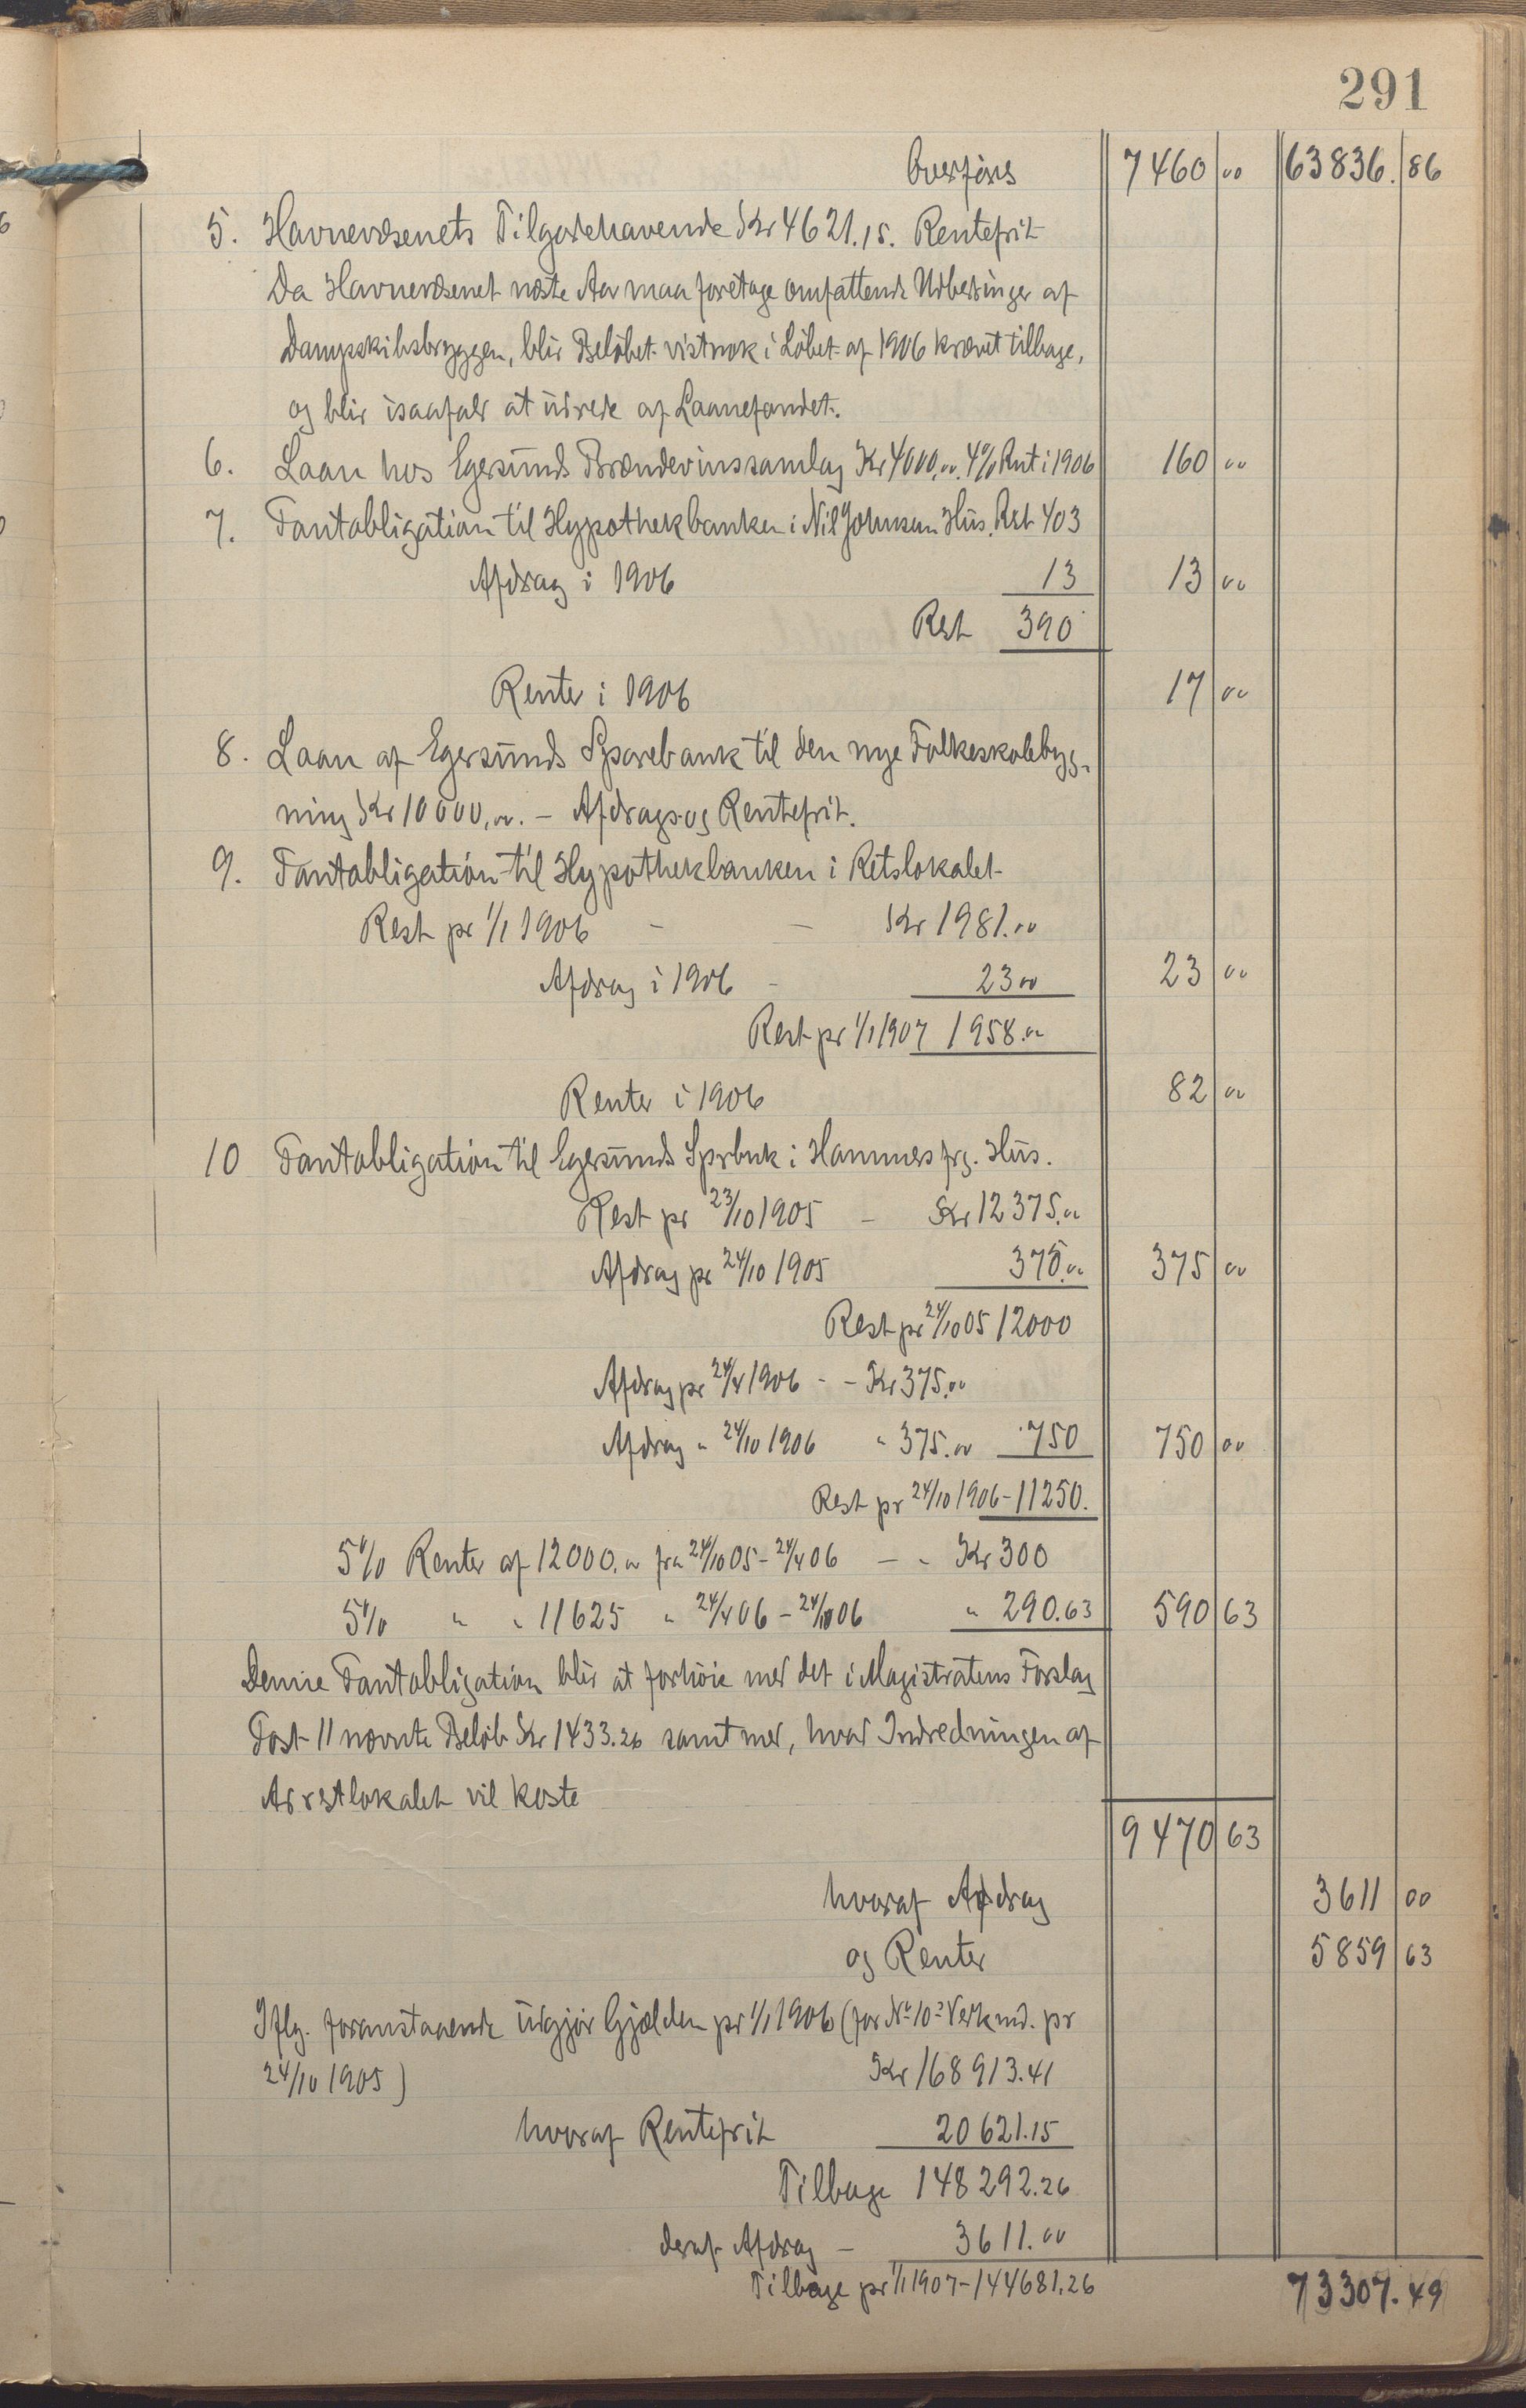 291
Overføres 7460 00 63836. 86
5. Havnevæsenets Tilgodehavende Kr 4621.15. Rentefrit
Da Havnevæsenet næste Aar maa foretage omfattende Udbedringer af
Dampskibsbryggen, blir Beløbet vistnok i Løbet af 1906 krævet tilbage,
og blir isaafald at udrede af Laanefondet.
6. Laan hos Egersunds Brændevinssamlag Kr 4000,00. 4% Rent i 1906 160 00
7. Pantobligation til Hypothekbanken i Nil Johnsens Hus. Rest 403
Afdrag i 1906 13 13 00
Rest 390
Renter i 1906 17 00
8. Laan af Egersunds Sparebank til den nye Folkeskolebyg-
ning Kr 10000,00. – Afdrags- og Rentefrit.
9. Pantobligation til Hypothekbanken i Retslokalet
Rest pr 1/1 1906 – – Kr 1981.00
Afdrag i 1906 – 23 00 23 00
Rest pr 1/1 1907 1958.00
Renter i 1906 82 00
10 Pantobligation til Egersunds Sprbnk i Hammers frg. Hus.
Rest pr 23/10 1905 – Kr 12375.00
Afdrag pr 24/10 1905 375.00 375 00
Rest pr 24/10 05 12000
Afdrag pr 24/4 1906 - - Kr 375.00
Afdrag " 24/10 1906 " 375.00 750 750 00
Rest pr 24/10 1906 – 11250.
5% Renter af 12000.00 fra 24/10 05 – 24/4 06 – " Kr 300
5% " " 11625 " 24/4 06 – 24/10 06 " 290.63 590 63
Denne Pantobligation blir at forhøie med det i Magistratens Forslag
Post 11 nævnte Beløb Kr 1433.26 samt med, hvad Indredningen af
Arrestlokalet vil koste
9470 63
hvoraf Afdrag 3611 00
og Renter 5859 63
Iflg. foranstaaende udgjør Gjælden pr 1/1 1906 (for No 10 pr
24/10 1905) Kr 168913.41
hvoraf Rentefrit 20621.15
Tilbage 148292.26
deraf Afdrag – 3611.00
Tilbage pr 1/1 1907 – 144681.26 73307.49